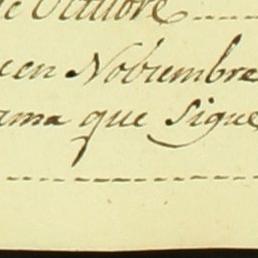 de Octubre
en Nobiembre
ama que sigue